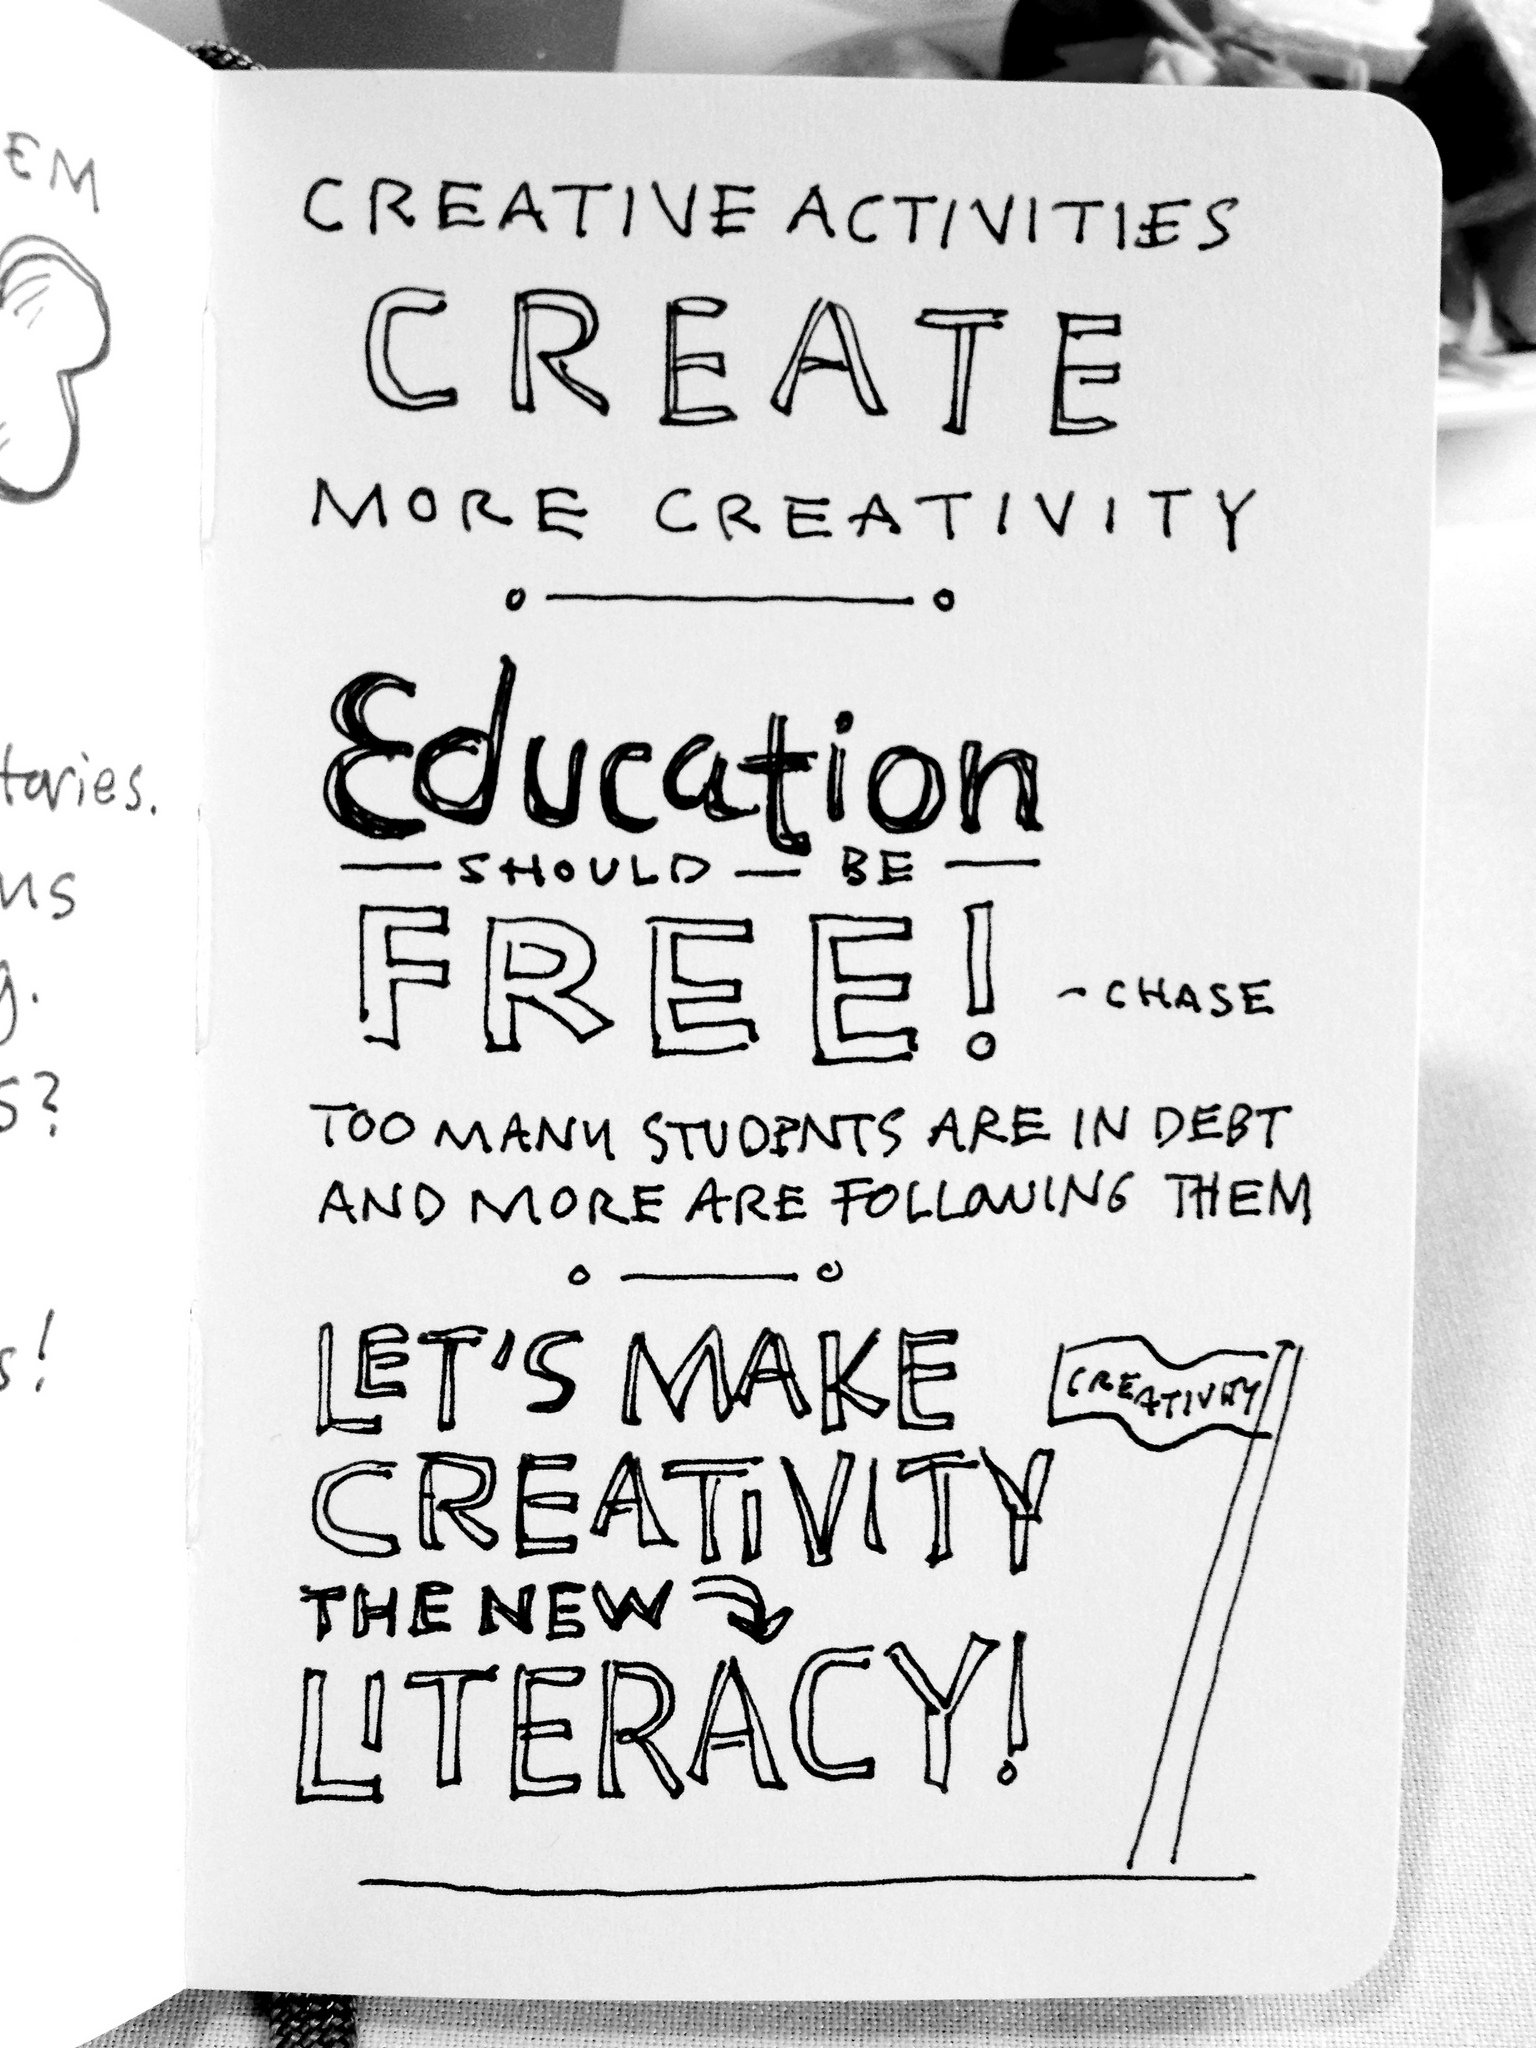 EM
tories.
ns
g.
s?
s!
CREATIVE ACTIVITIES
CREATE
MORE CREATIVITY
Education
SHOULD — BE
FREE!
~CHASE
TOO MANY STUDENTS ARE IN DEBT
AND MORE ARE FOLLOWING THEM
LET'S MAKE
CREATIVITY
THE NEW
LITERACY!
CREATIVITY